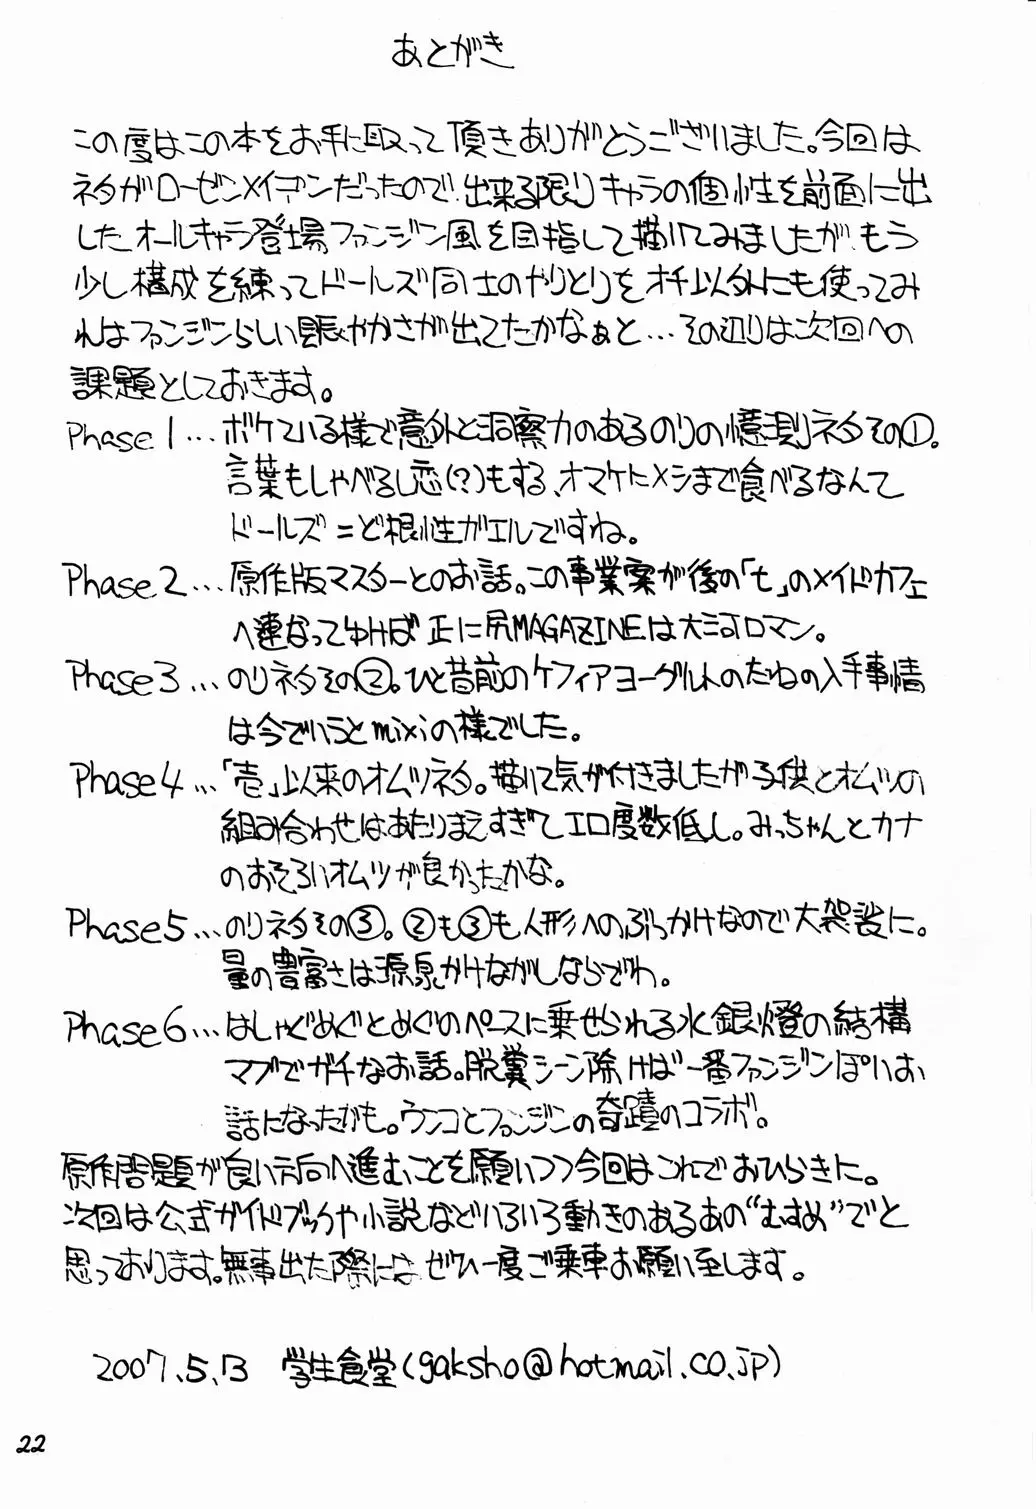 あとがき
この度はこの本をお手に取って頂きありがとうございました。今回は
ネタがローゼンメイデンだったので、出来る限りキャラの個性を前面に出
したオールキャラ登場ファンジン風を目指して描いてみましたが、もう
少し構成を練ってドールズ同士のやりとりをオチ以外にも使ってみ
ればファンジンらしい賑やかさが出てたかなぁと…その辺りは次回への
課題としておきます。
Phase1…ボケている様で意外と洞察力のあるのりの憶測ネタその①。
言葉もしゃべるし恋(?)もする、オマケにメシまで食べるなんて
ドールズ=ど根性ガエルですね。
Phase2…原作版マスターとのお話。この事業案が後の「t」のメイドカフェ
へ連なってゆけば正に尻MAGAZINEは大河ロマン。
Phase3…のりネタその②。ひと昔前のケフィアヨーグルトのたねの入手事情
は今でいうとmixiの様でした。
Phase4…「壱」以来のオムツネタ。描いて気が付きましたが子供とオムツの
組み合わせはあたりまえすぎてエロ度数低し。みっちゃんとカナ
のおそろいオムツが良かったかな。
Phase5…のりネタその③。②も③も人形へのぶっかけなので大袈裟に。
量の豊富さは源泉かけながしならでわ。
Phase6…はしゃぐめぐとめぐのペースに乗せられる水銀燈の結構
マブでガチなお話。脱糞シーン除けば一番ファンジンぽいお
話になったかも。ウンコとファンジンの奇蹟のコラボ。
原作問題が良い方向へ進むことを願いつつ今回はこれでおひらきに。
次回は公式ガイドブックや小説などいろいろ動きのあるあの"むすめ"でと
思っております。無事出た際にはぜひ一度ご乗車お願い致します。
2007.5.13 学生食堂(gaksho@hotmail.co.jp)
22